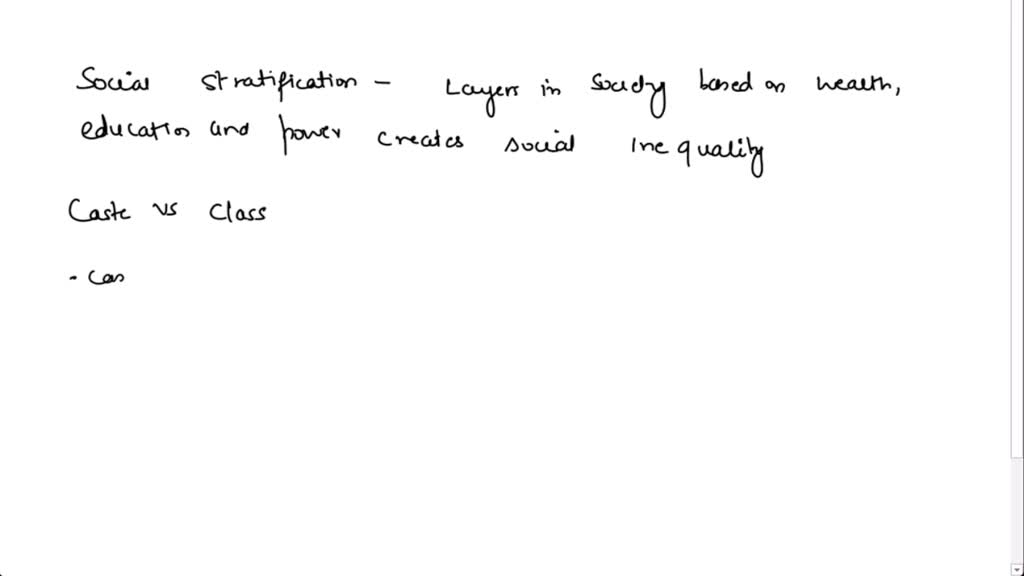 Social stratification - Layers in Society based on wealth,
education and power creates social inequality
Caste vs Class
- Cas